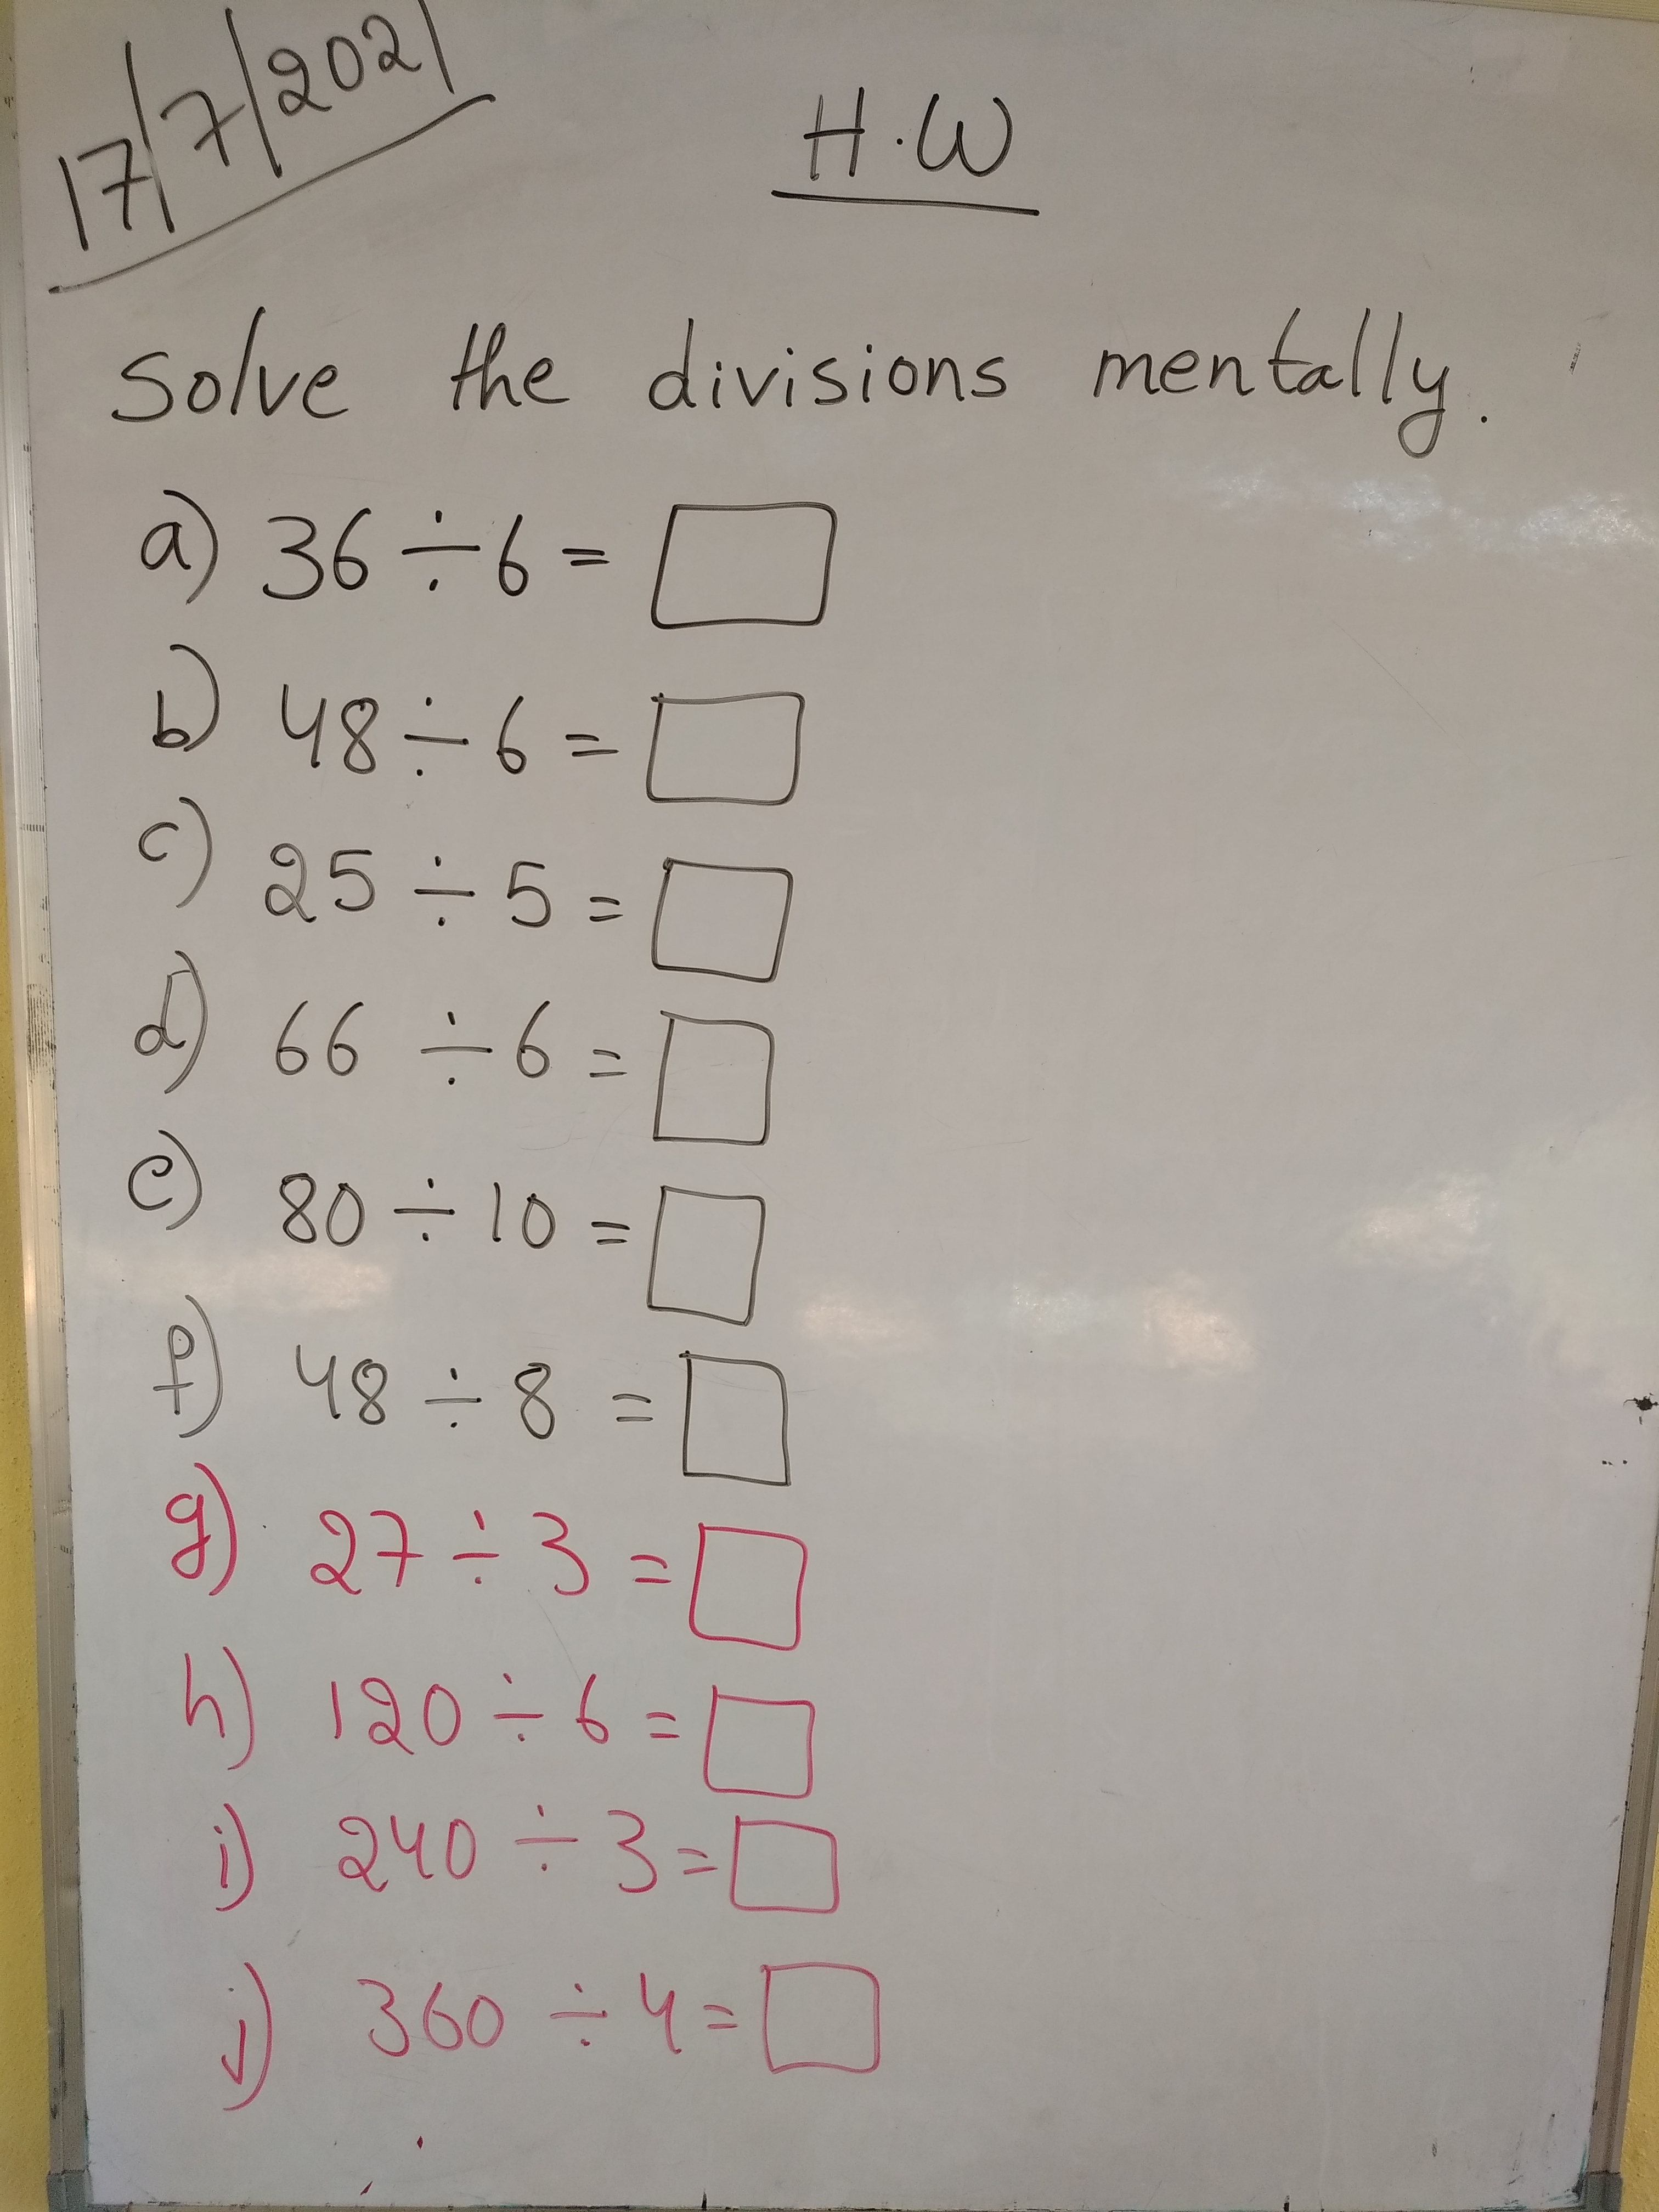 17/7/2021
H.W
Solve the divisions mentally.
a) 36 ÷ 6 =
b) 48 ÷ 6 =
c) 25 ÷ 5 =
d) 66 ÷ 6 =
e) 80 ÷ 10 =
f) 48 ÷ 8 =
g) 27 ÷ 3 =
h) 120 ÷ 6 =
i) 240 ÷ 3 =
j) 360 ÷ 4 =